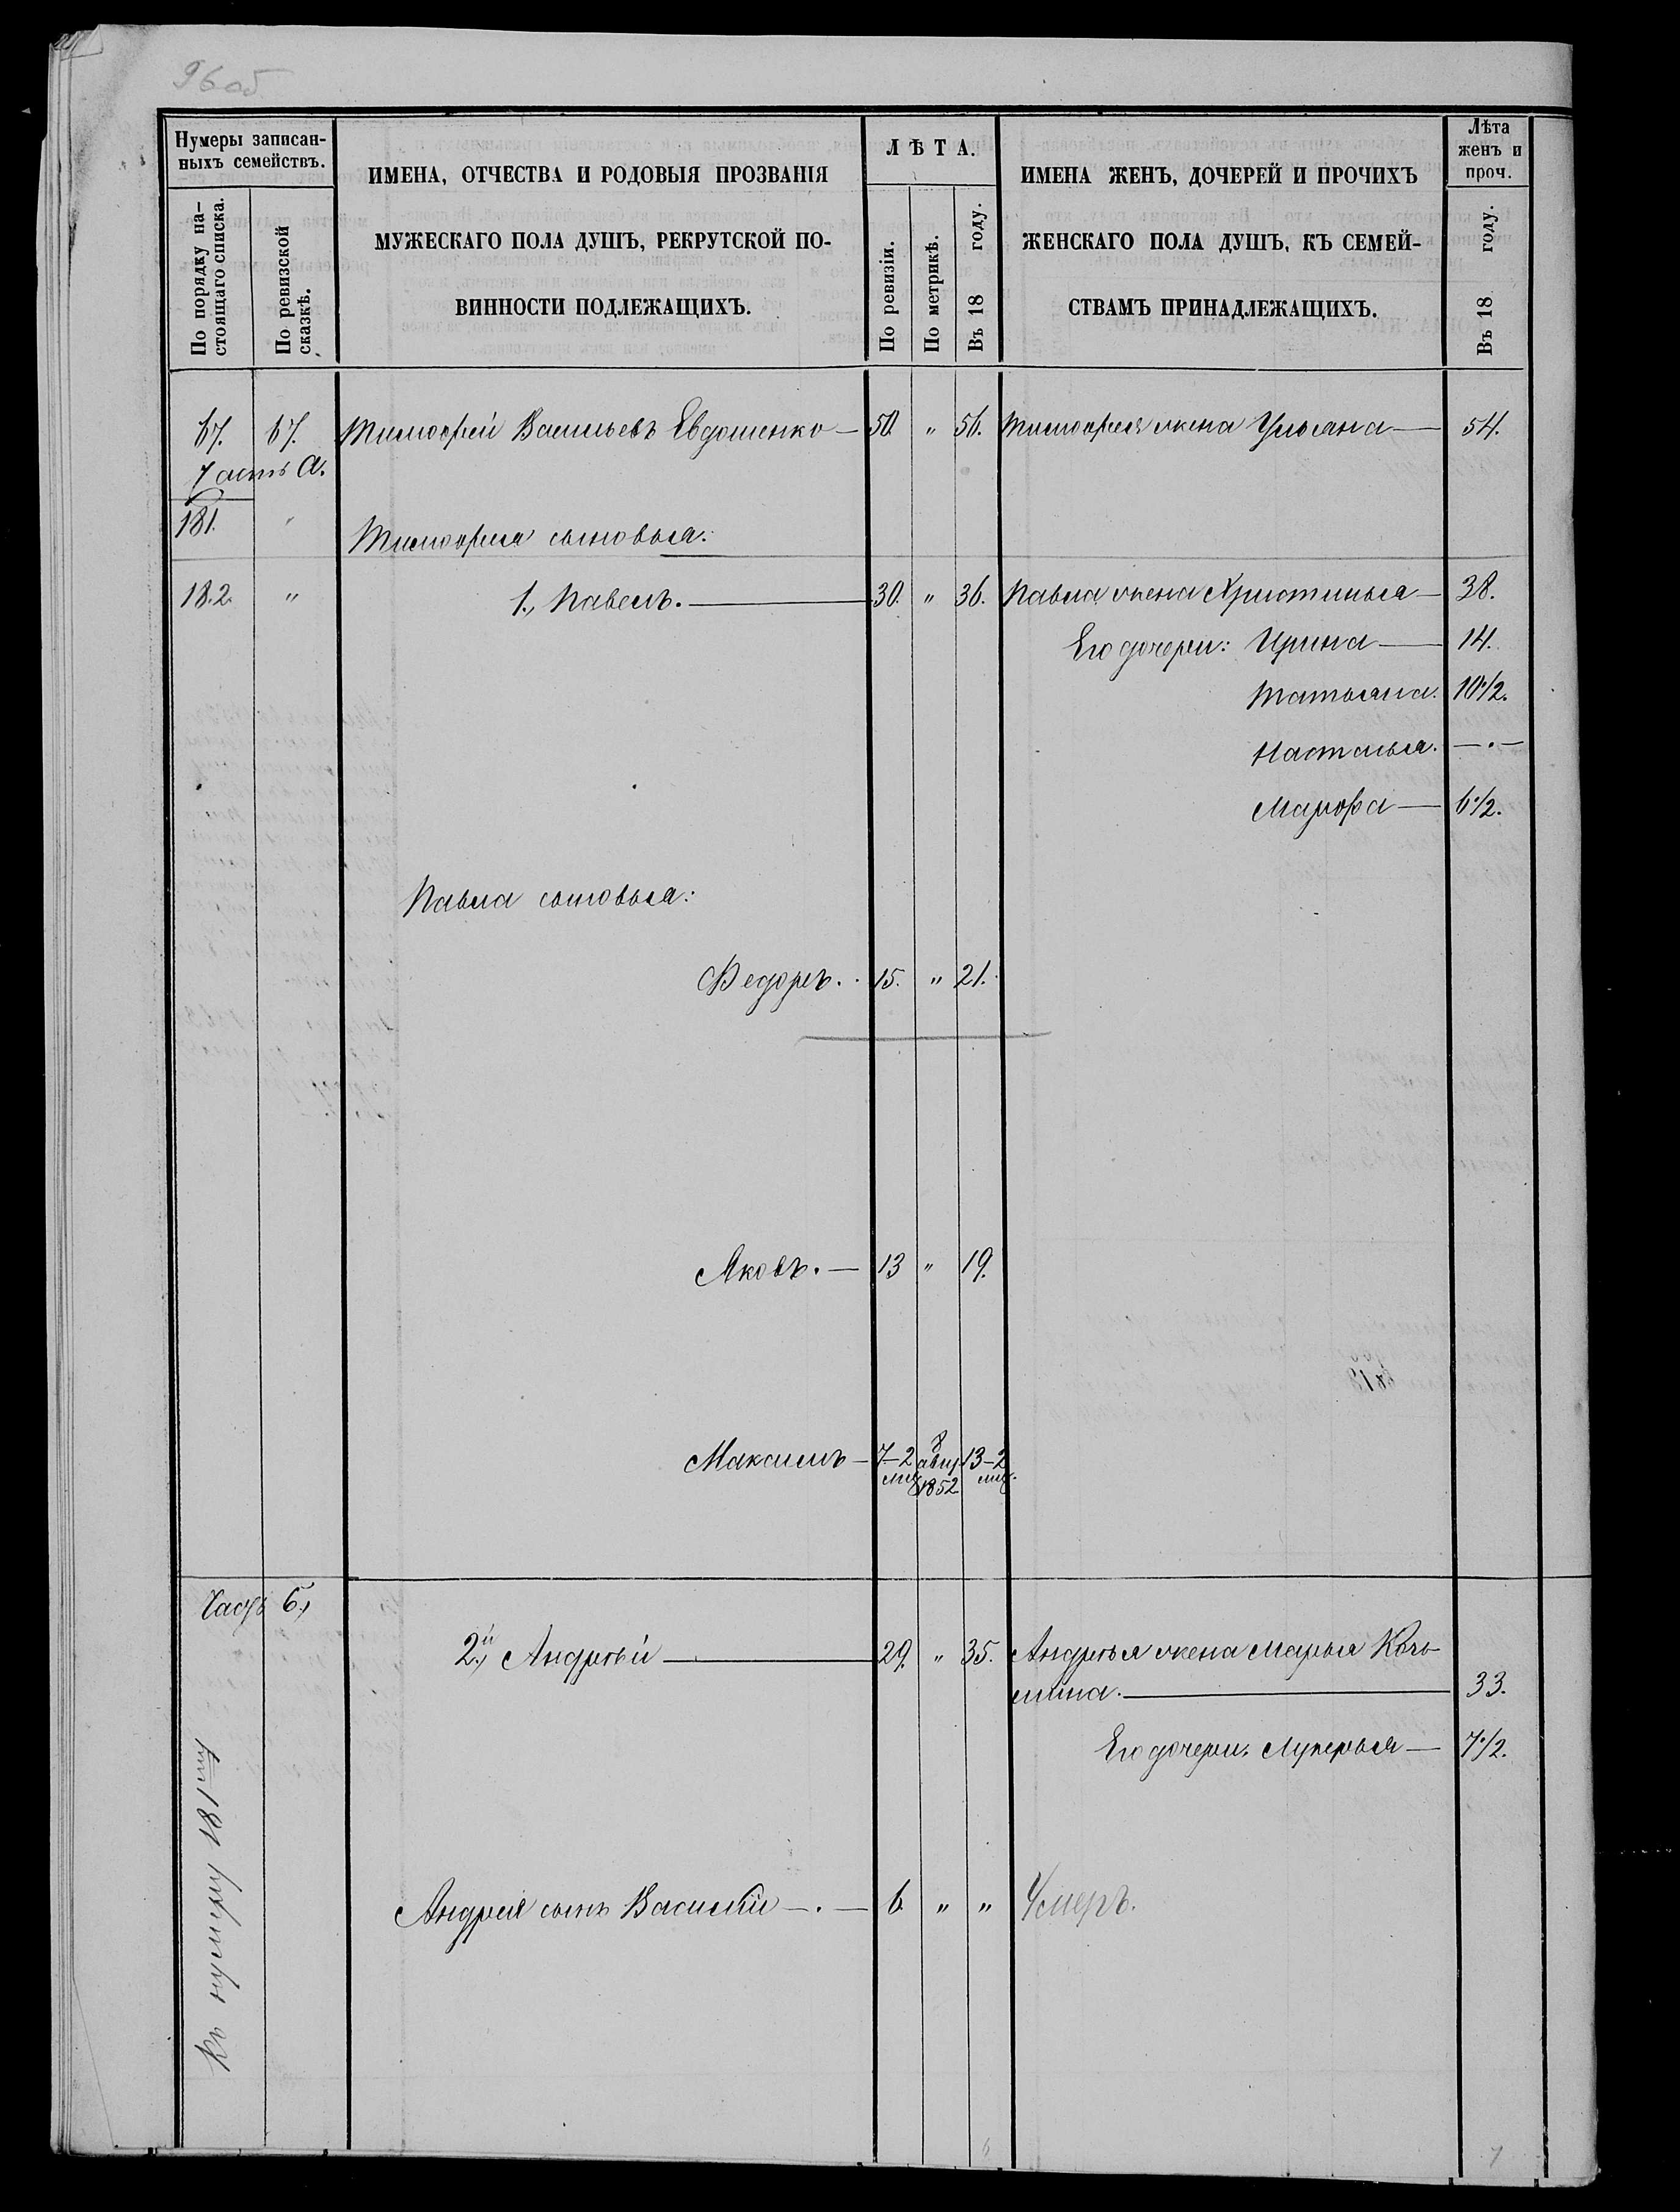 96 об
Нумеры записан-
ныхъ семействъ.
По порядку на-
стоящаго списка.
По ревизской
сказкѣ.
ИМЕНА, ОТЧЕСТВА И РОДОВЫЯ ПРОЗВАНІЯ
МУЖЕСКАГО ПОЛА ДУШЪ, РЕКРУТСКОЙ ПО-
ВИННОСТИ ПОДЛЕЖАЩИХЪ.
ЛѢТА.
По ревизіи.
По метрикѣ.
Въ 18 году.
ИМЕНА ЖЕНЪ, ДОЧЕРЕЙ И ПРОЧИХЪ
ЖЕНСКАГО ПОЛА ДУШЪ, КЪ СЕМЕЙ-
СТВАМЪ ПРИНАДЛЕЖАЩИХЪ.
Лѣта
женъ и
проч.
Въ 18 году.
67. 67. Тимофей Васильевъ Евдошенко — 50. " 56. Тимофея жена Ульяна — 54.
Часть А.
181. "
Тимофея сыновья:
182. " 1., Павелъ. — 30. " 36. Павла жена Христинья — 38.
Его дочери: Ирина — 14.
Татьяна. 10½.
Наталья. — . —
Марфа — 6½.
Павла сыновья:
Федоръ. . 15. " 21.
Яковъ. — 13 " 19.
Максимъ — 7–2 8 авг. 13–2
мѣс. 1852 мѣс.
Часть Б.,
2й., Андрѣй — 29. " 35. Андрѣя жена Марья
33.
Его дочери: Лукерья — 7½.
Андрея сынъ Василій — . — 6. " " Умеръ.
Къ нумеру 181му